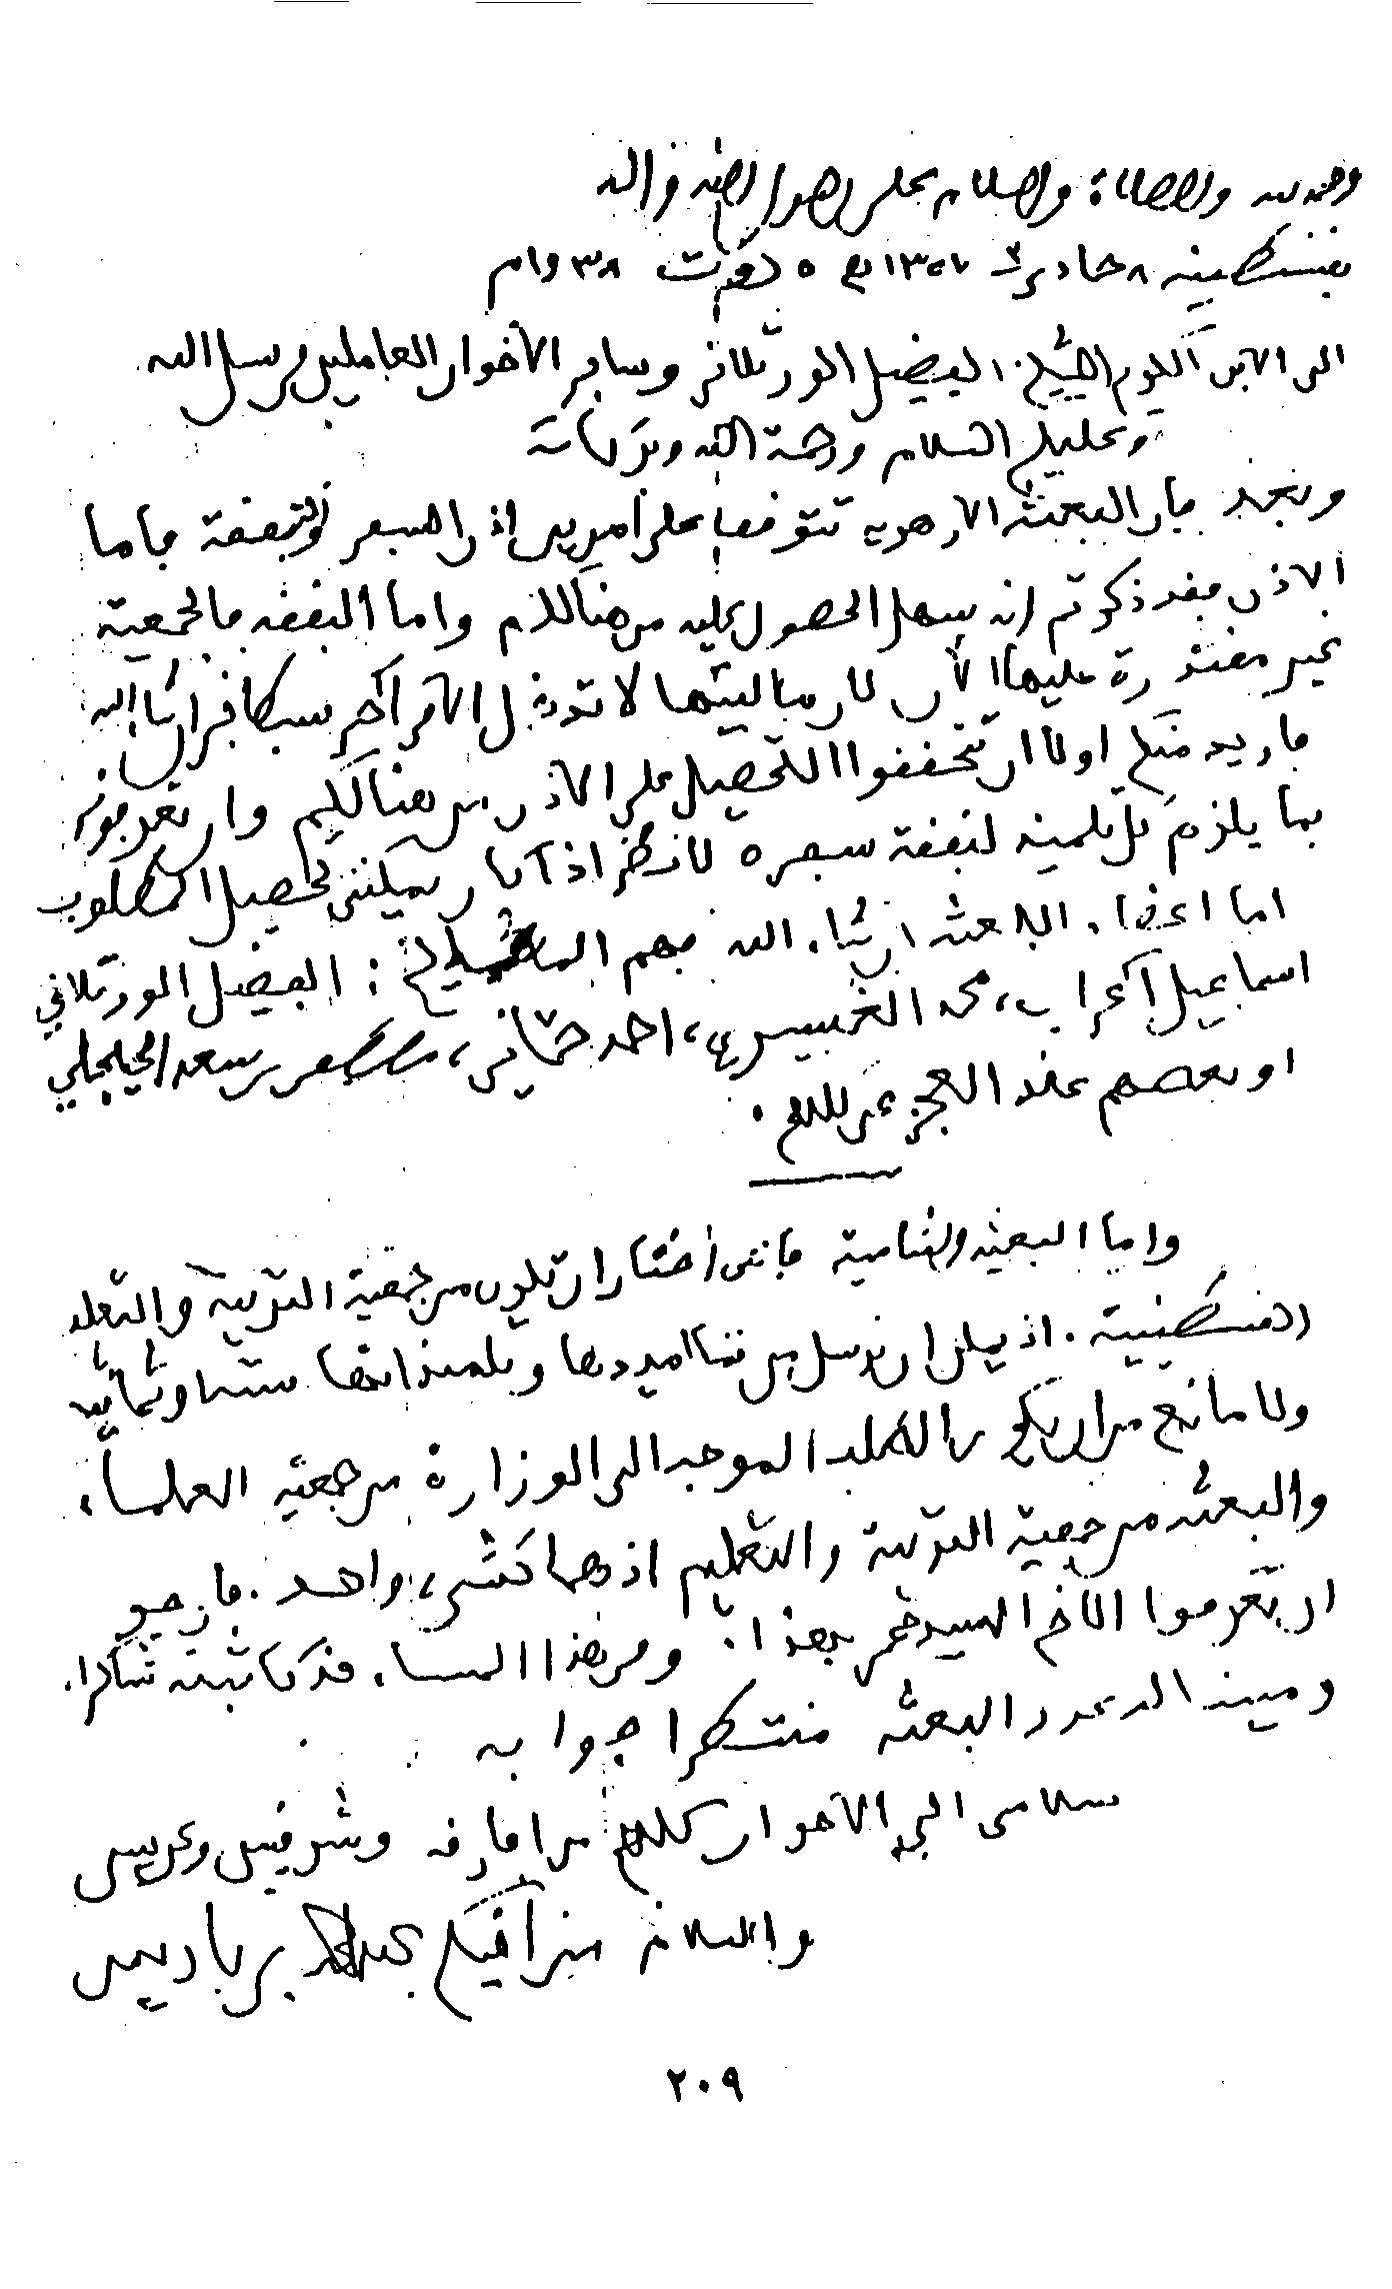 الحمد لله والصلاة والسلام على رسول الله وآله
بقسنطينة ٨ جمادى ١٣٥٧ ٥ أوت ٣٨ وام
الى الابن الكريم الشيخ الفضيل الورتلاني وساير الاخوان العاملين في سبيل الله
وعليكم السلام ورحمة الله وبركاته
وبعد فان البعثة الازهرية تتوقف على أمرين اذن السفر والنفقة فاما
الاذن فقد ذكرتم انه يسهل الحصول عليه من هنالكم واما النفقة فالجمعية
غير مقتدرة عليها الآن لان ماليتها لا
فاريد منكم اولا ان تحققوا التحصيل على الاذن من هنالكم وان تعرفونى
بما يلزم كل تلميذ لنفقة سفره لانظر اذا كان يمكننى تحصيل المطلوب
اما اعضاء البعثة ان شاء الله فهم المشايخ : الفضيل الورتلاني
اسماعيل اعراب، محمد الغسيري، احمد حماني، بن سعد الجيجلي
او بعضهم عند العجز عن كلهم.
واما البعثة الشامية فاننى أختار ان تكون من جمعية التربية والتعليم
القسنطينية. اذ يمكن ان نرسل من تلاميذها وتلميذاتها ستة او ثمانية
ولا مانع من ان يكون الطلب الموجه الى الوزارة من جمعية العلماء
والبعثة من جمعية التربية والتعليم اذ هما كشيء واحد. فارجو
ان تعرفوا الاخ السيد بهذا. وفى هذا المساء قد كاتبته شاكرا.
ومبينا له عدد البعثة منتظرا جوابه
سلامى الى الاخوان كلهم من افارقة وشرقيين وغربيين
والسلام من اخيكم عبد الحميد بن باديس
٢٠٩